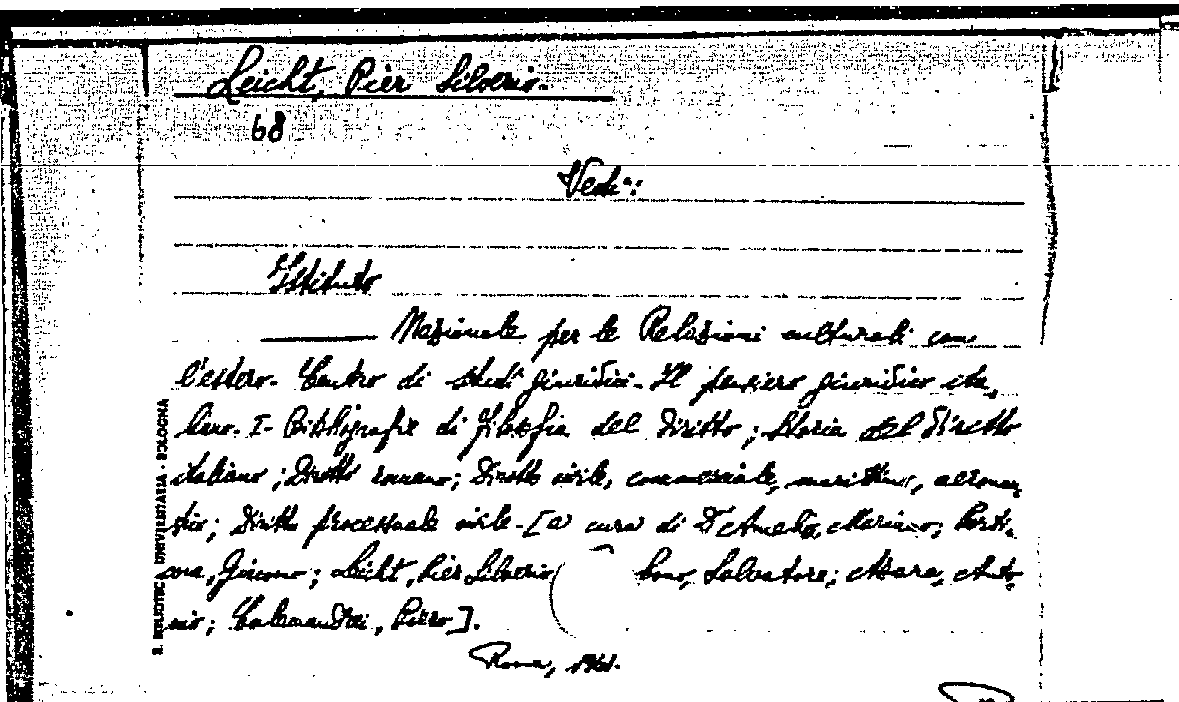 Leicht, Pier Silverio.
68
Vedi:
Istituto
Nazionale per le Relazioni culturali con
l'estero. Centro di studi giuridici. Il pensiero giuridico ita-
liano. I- Bibliografie di filosofia del Diritto; Storia del Diritto
italiano; Diritto romano; Diritto civile, commerciale, marittimo, aeronau-
tico; Diritto processuale civile. [a cura di D'Amelio, Mariano; Perti-
cone, Giacomo; Leicht, Pier Silverio Romano, Salvatore; Marongiu, Anto-
nio; Calamandrei, Piero].
Roma, 1941.
R. BIBLIOTECA UNIVERSITARIA - BOLOGNA